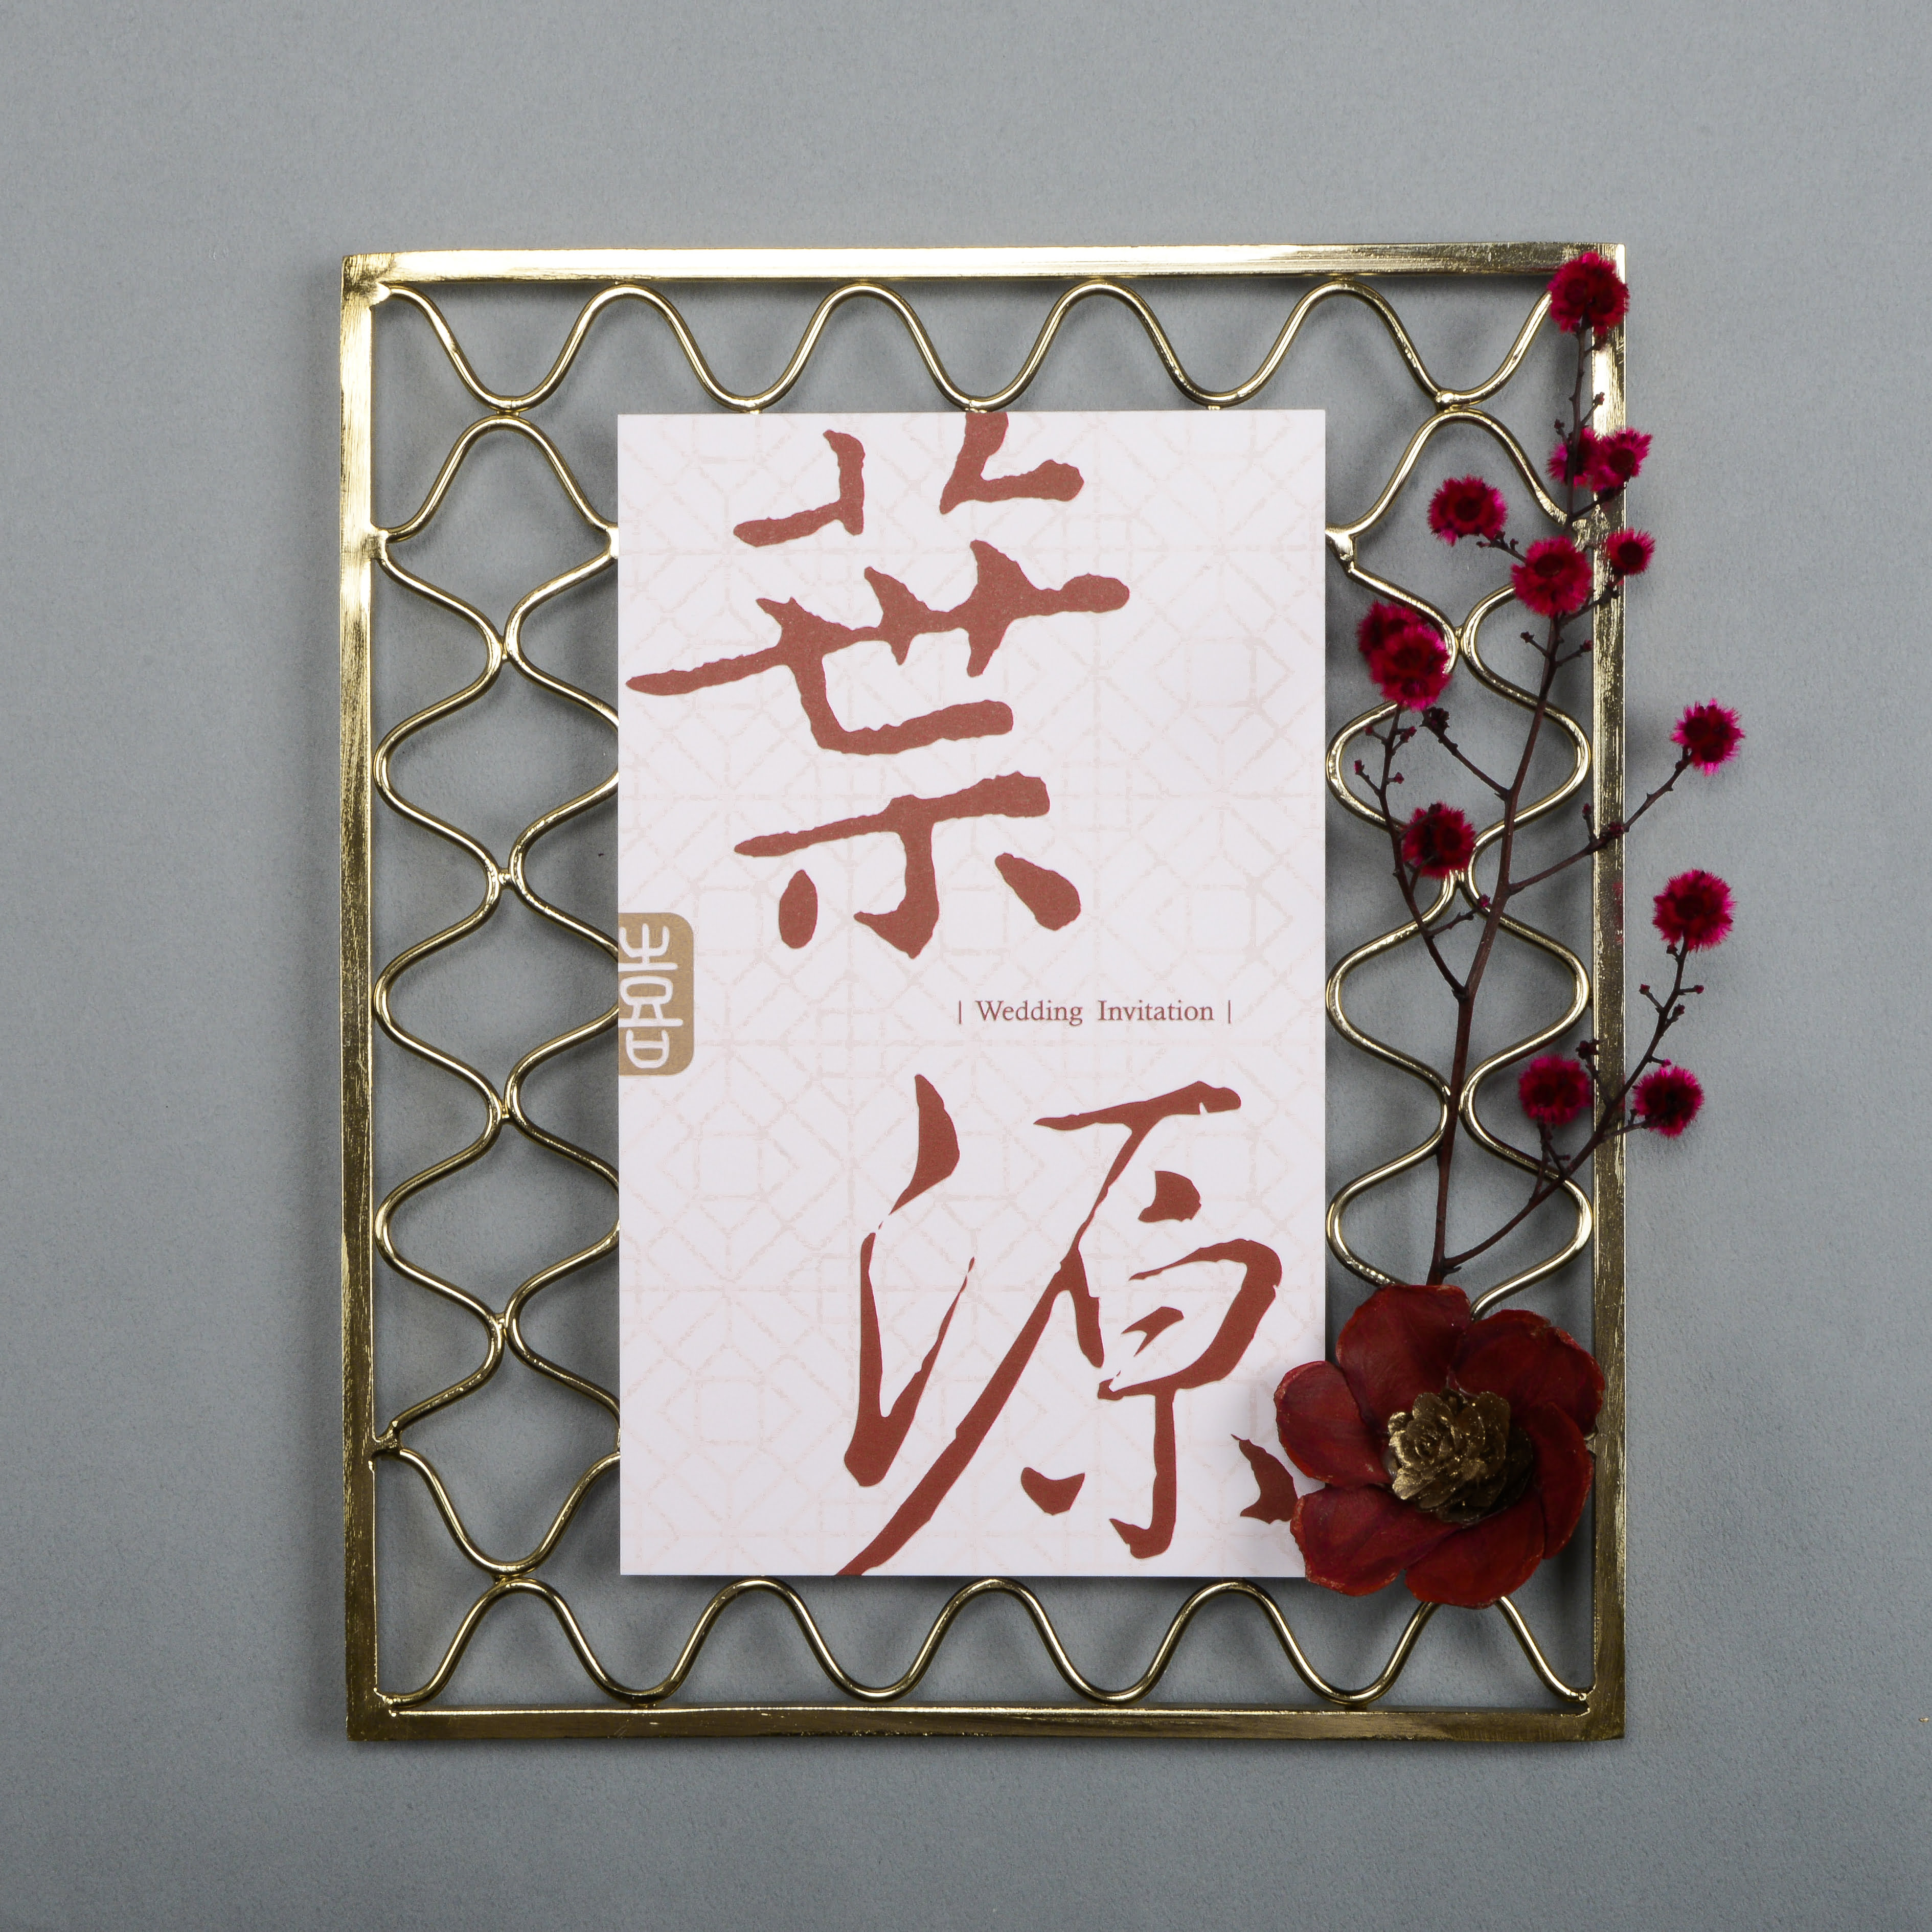 葉
囍
| Wedding Invitation |
源